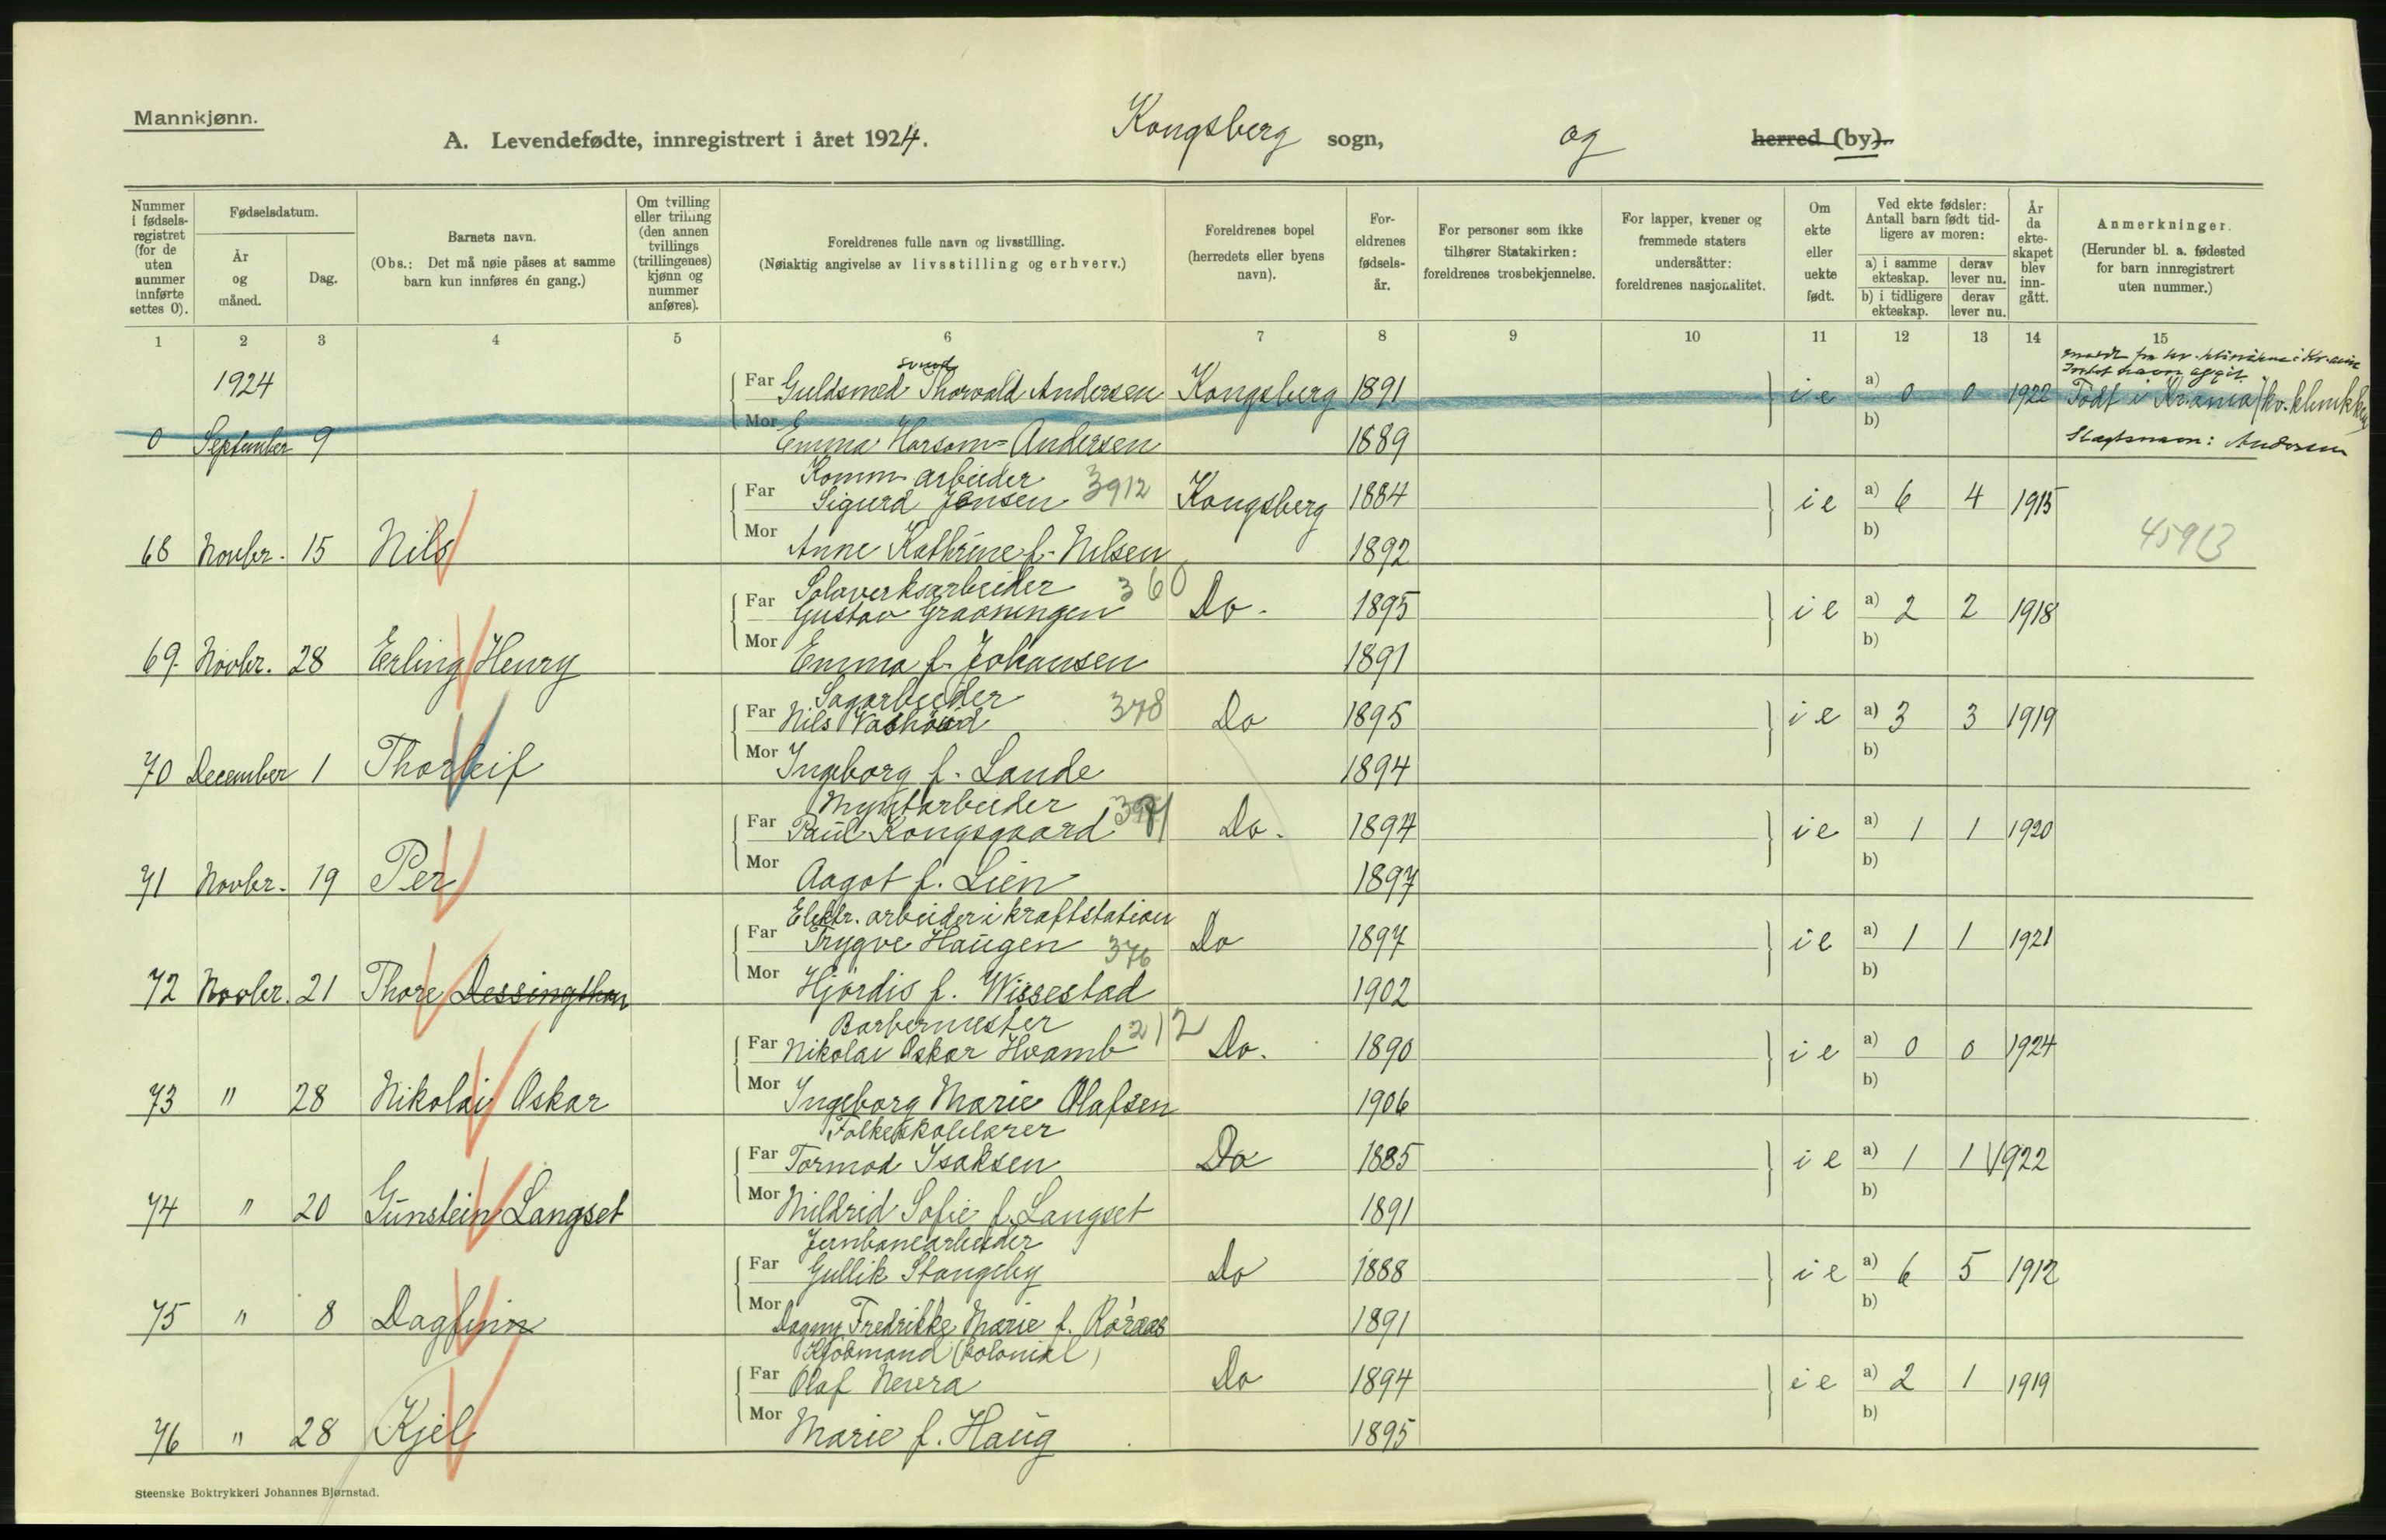 Mannkjønn.
A. Levendefødte, innregistrert i året 1924. Kongsberg sogn, og herred (by).
Nummer i fødsels-registret (for de uten nummer innførte settes 0).
Fødselsdatum.
År og måned.
Dag.
Barnets navn.
(Obs.: Det må nøie påses at samme barn kun innføres én gang.)
Om tvilling eller trilling (den annen tvillings (trillingenes) kjønn og nummer anføres).
Foreldrenes fulle navn og livsstilling.
(Nøiaktig angivelse av livsstilling og erhverv.)
Foreldrenes bopel (herredets eller byens navn).
For-eldrenes fødsels-år.
For personer som ikke tilhører Statskirken: foreldrenes trosbekjennelse.
For lapper, kvener og fremmede staters undersåtter: foreldrenes nasjonalitet.
Om ekte eller uekte født.
Ved ekte fødsler: Antall barn født tid-ligere av moren:
a) i samme ekteskap. derav lever nu.
b) i tidligere ekteskap. derav lever nu.
År da ekte-skapet blev inn-gått.
Anmerkninger.
(Herunder bl. a. fødested for barn innregistrert uten nummer.)
1 2 3 4 5 6 7 8 9 10 11 12 13 14 15
1924
Far Guldsmed Thorvald Andersen Kongsberg 1891 ie a) 0 0 1922 Født i Kr.ania (kv. klinikken
0 September 9 Mor Emma Horsom-Andersen 1889 b) Slægtsnavn: Andersen
Komm. arbeider
Far Sigurd Jensen 3912 Kongsberg 1884 ie a) 6 4 1915
68 Novbr. 15 Nils Mor Anne Kathrine f. Nilsen 1892 b)
Sølvverksarbeider 360
Far Gustav Graaningen Do. 1895 ie a) 2 2 1918
69. Novbr. 28 Erling Henry Mor Emma f. Johansen 1891 b)
Sagarbeider
Far Nils 378 Do 1895 ie a) 3 3 1919
70 December 1 Thorleif Mor Ingeborg f. Lande 1894 b)
Myntarbeider
Far Paul Kongsgaard Do. 1894 ie a) 1 1 1920
71 Novbr. 19 Per Mor Aagot f. Lien 1897 b)
Elektr. arbeider i kraftstation
Far Trygve Haugen 376 Do 1897 ie a) 1 1 1921
72 Novbr. 21 Thore Dessingthon Mor Hjørdis f. Wissestad 1902 b)
Barbermester 212
Far Nikolai Oskar Hvamb Do. 1890 ie a) 0 0 1924
73 " 28 Nikolai Oskar Mor Ingeborg Marie Olafsen 1906 b)
Folkeskolelærer
Far Tormod Isaksen Do 1885 ie a) 1 1 1922
74 " 20 Gunstein Langset Mor Mildrid Sofie f. Langset 1891 b)
Jernbanearbeider
Far Gullik Stangeby Do 1888 ie a) 6 5 1912
75 " 8 Dagfinn Mor Dagny Fredrikke Marie f. Raaraas 1891 b)
Kjøbmand (kolonial)
Far Olaf Do 1894 ie a) 2 1 1919
76 " 28 Kjel Mor Marie f. Haug 1895 b)
Steenske Boktrykkeri Johannes Bjørnstad.